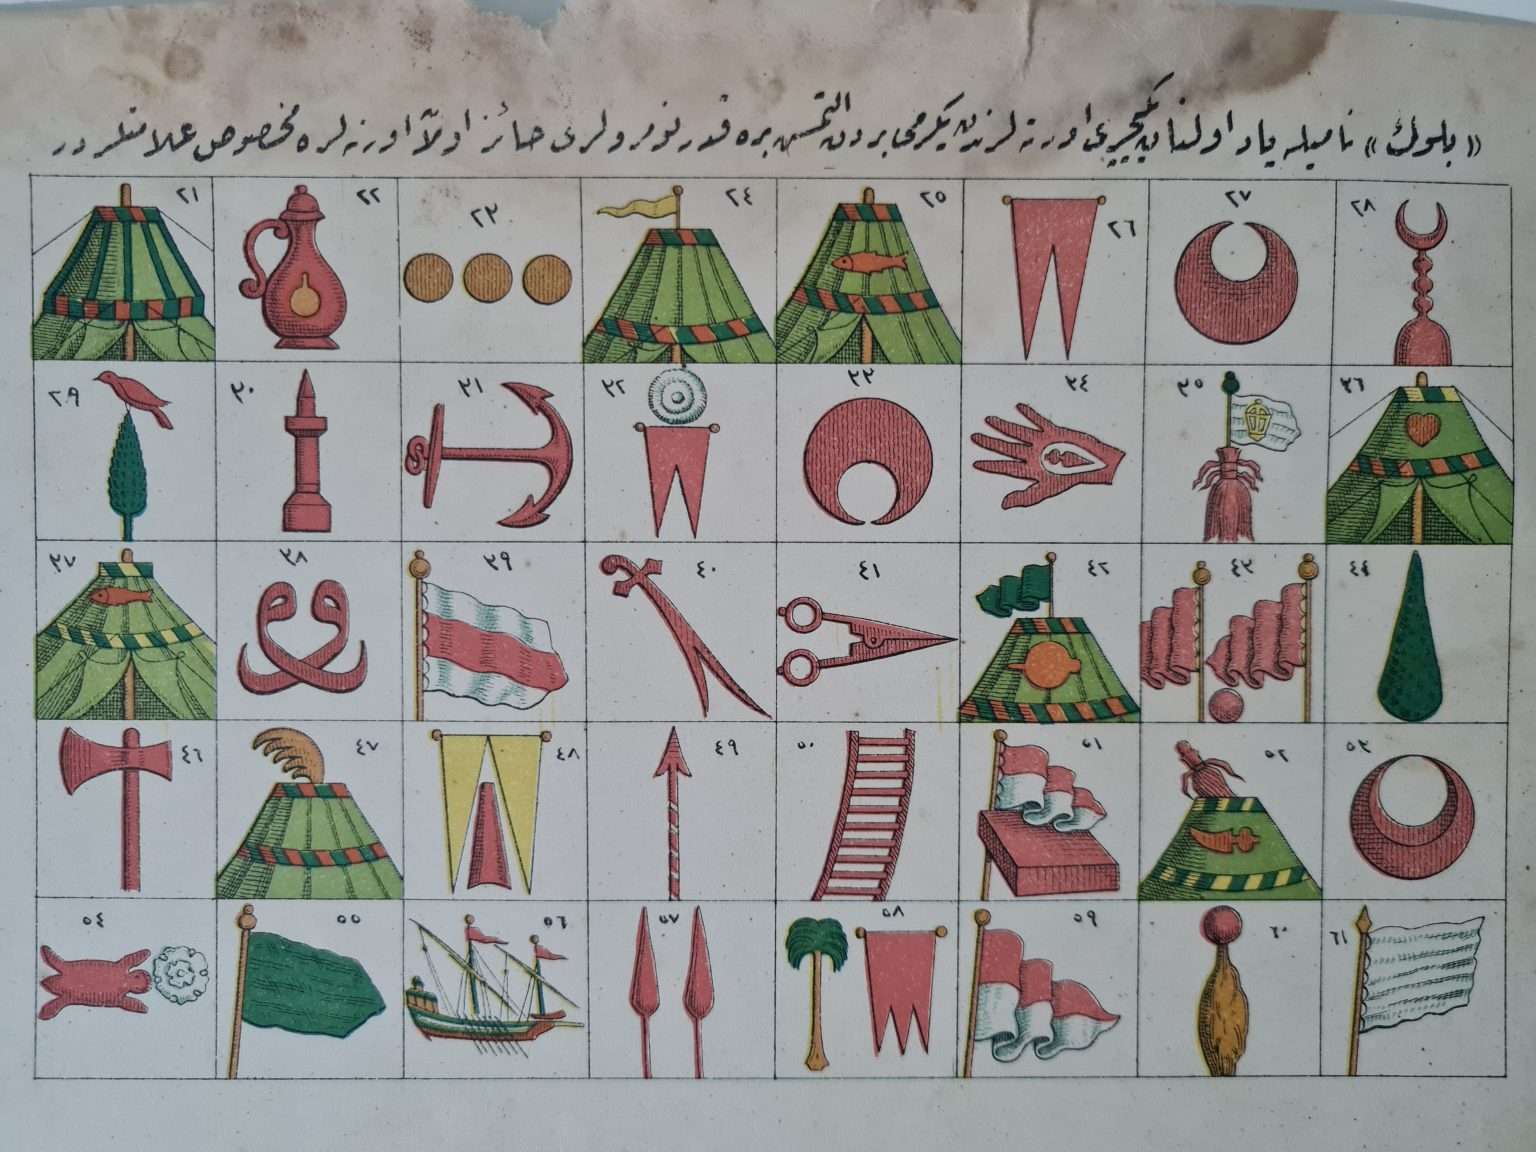 «بلوك» ناميله ياد اولنان يڭيچرى اورته لرندن يكرمى بردن التمش بره قدر نومرولرى حائز اولان اورته لره مخصوص علامتلردر
٢١ ٢٢ ٢٣ ٢٤ ٢٥ ٢٦ ٢٧ ٢٨
٢٩ ٣٠ ٣١ ٣٢ ٣٣ ٣٤ ٣٥ ٣٦
٣٧ ٣٨ ٣٩ ٤٠ ٤١ ٤٢ ٤٣ ٤٤
٤٦ ٤٧ ٤٨ ٤٩ ٥٠ ٥١ ٥٢ ٥٣
٥٤ ٥٥ ٥٦ ٥٧ ٥٨ ٥٩ ٦٠ ٦١